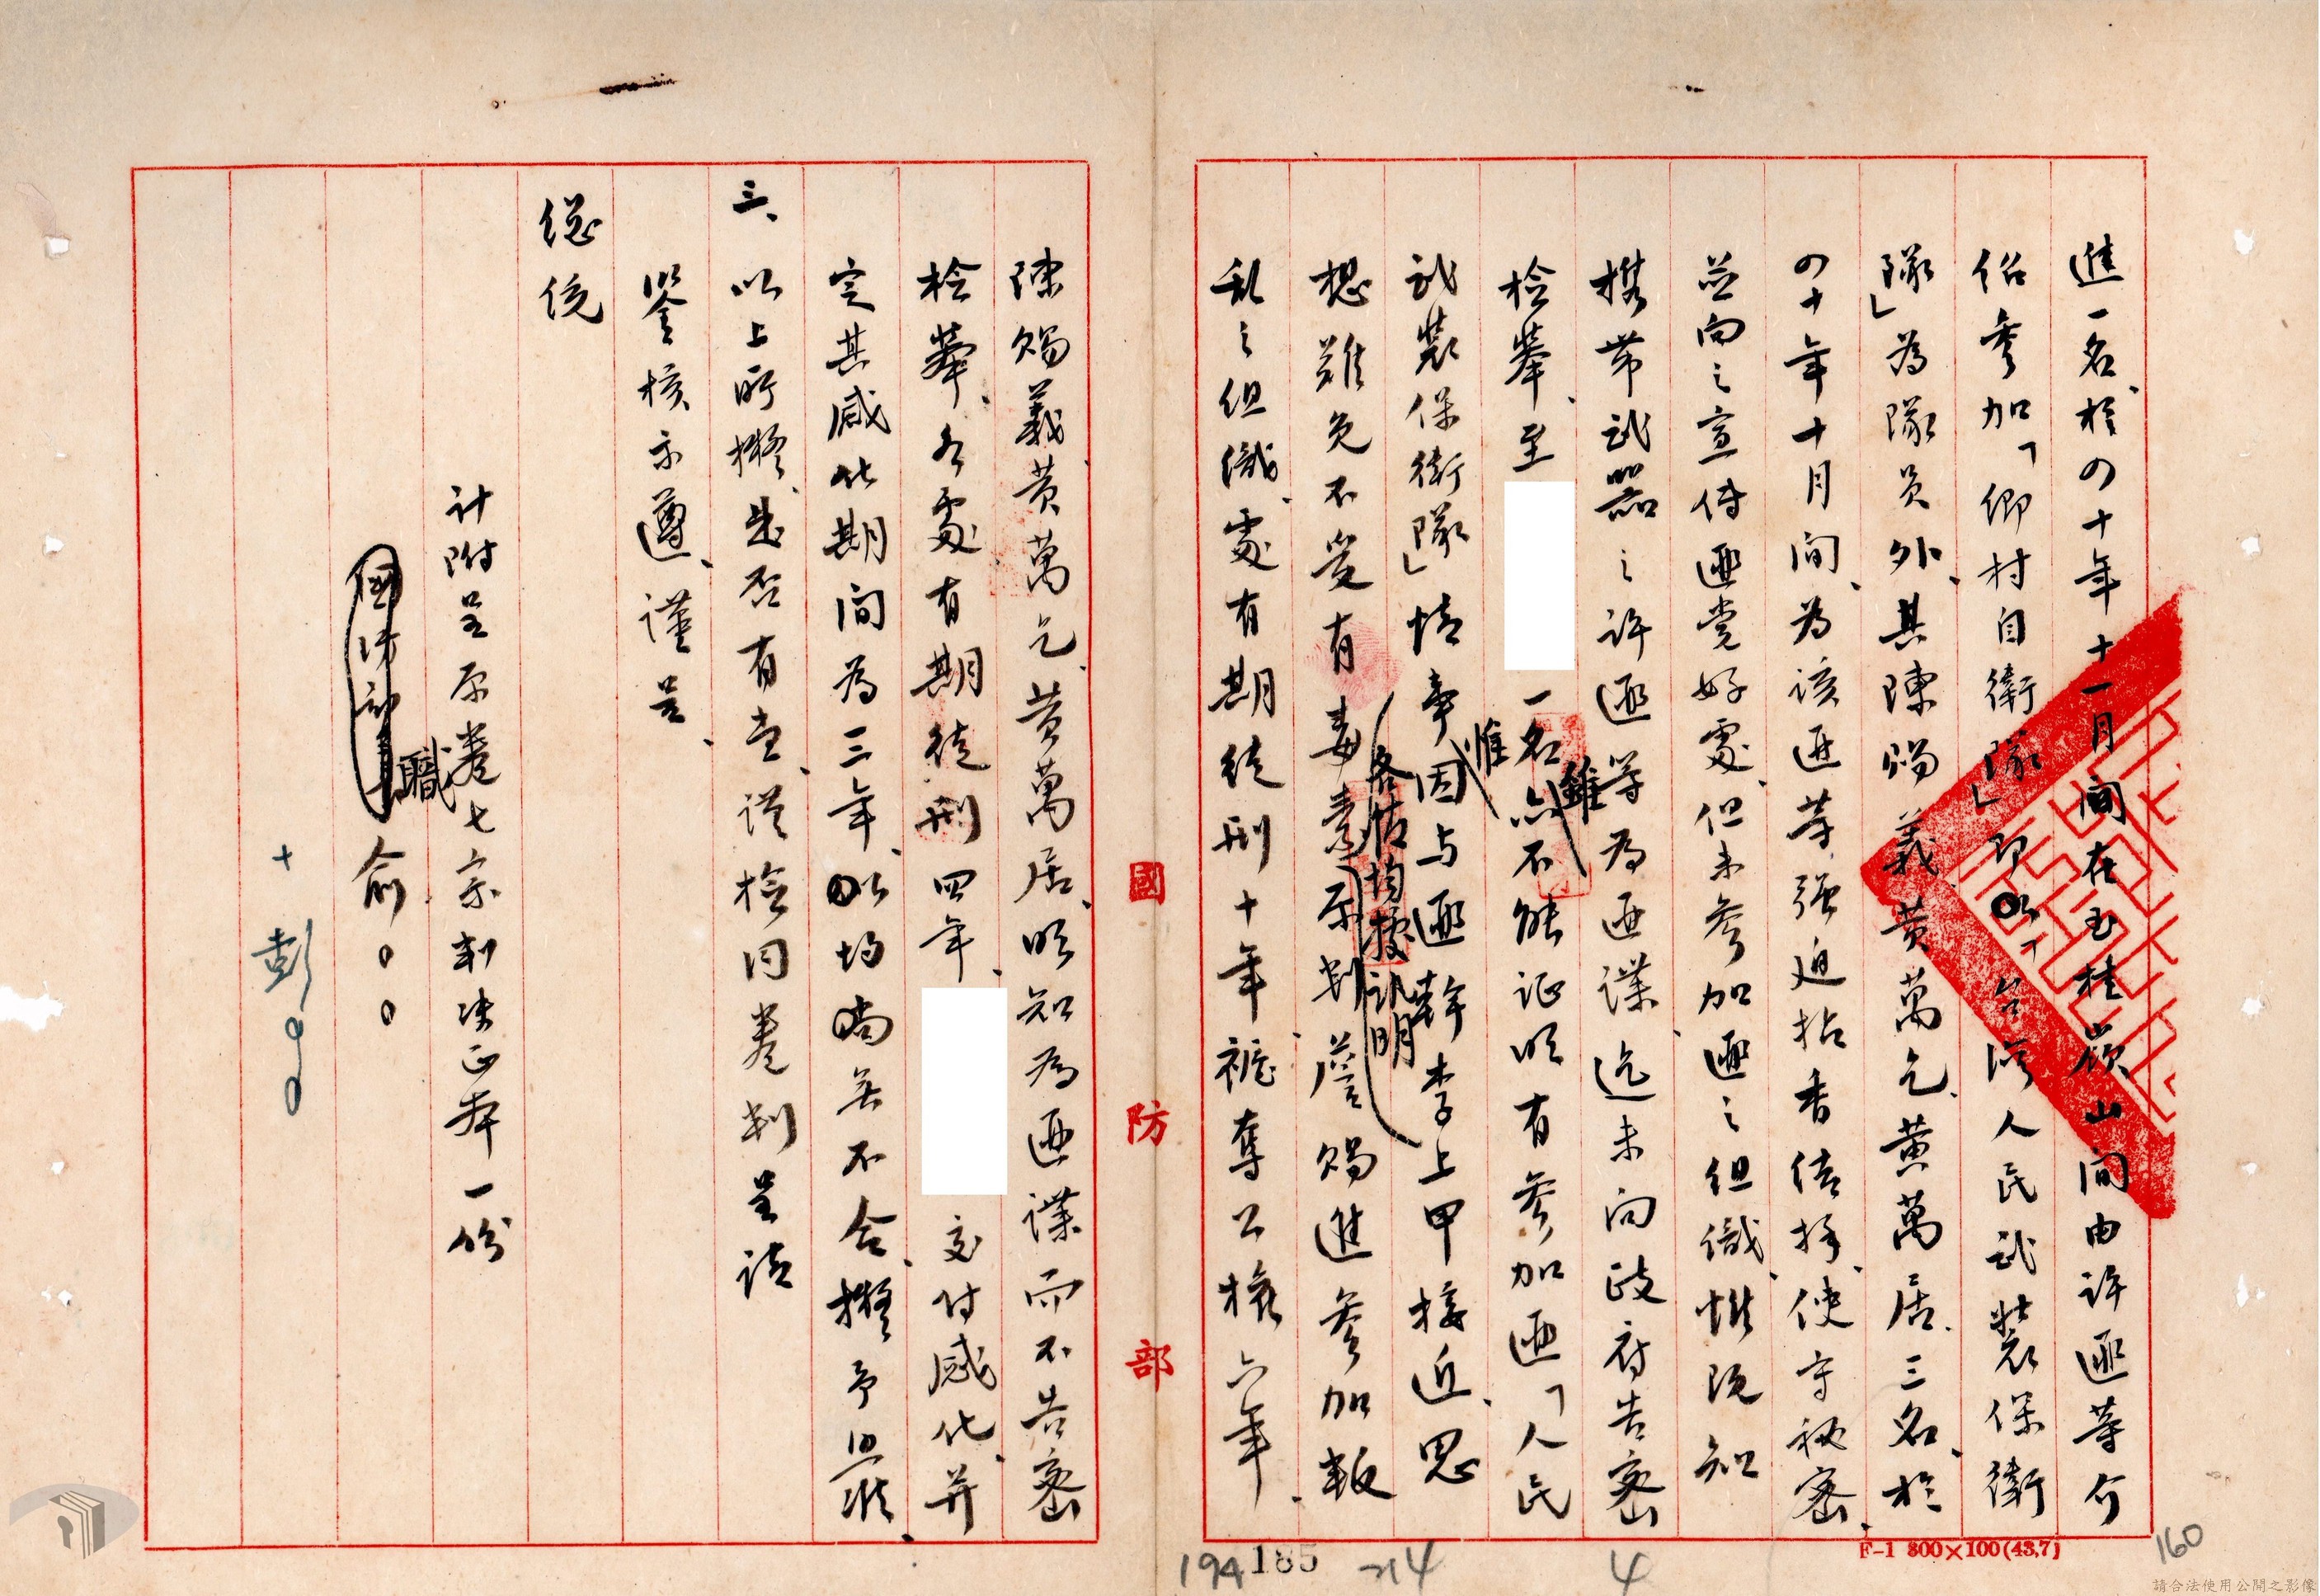 進一名、於四十年十一月間在玉桂嶺山間由許匪等介
紹參加「鄉村自衛隊」即「台灣人民武裝保衛
隊」為隊員外、其陳賜義、黃萬乞、黃萬居、三名、於
四十年十月間、為該匪等强迫拈香結拜、使守秘密、
並向之宣傳匪党好處、但未參加匪之組織、惟既知
携帶武器之許匪等為匪諜、迄未向政府告密
檢舉、至
一名雖不能証明有參加匪「人民
武裝保衛隊」情事、惟因与匪幹李上甲接近、思
想難免不受有毒素、各情均據訊明原判詹賜進參加叛
乱之組織、處有期徒刑十年、褫奪公權六年、
國防部
陳賜義、黃萬乞、黃萬居、明知為匪諜而不告密
檢舉、各處有期徒刑四年、
交付感化、并
定其感化期間為三年、以均尚無不合、擬予照准、
三、以上所擬、是否有當、謹檢同卷判呈請
鑒核示遵、謹呈、
總統
計附呈原卷七宗判決正本一份
國防部
職俞○○
十 彭
194 185 214 4
F-1 300×100(43,7)
160
請合法使用公開之影像